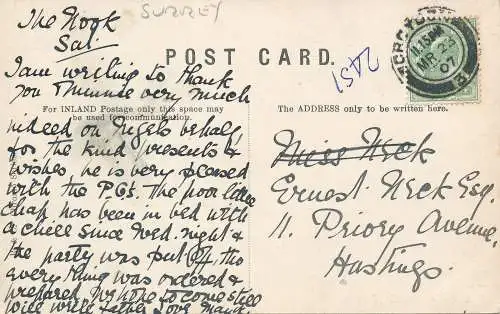 SURREY
The Nook
Sat.
POST CARD.
2451
CROYDON
11.15 PM
MR 23
07
I am writing to thank
you & Minnie very much
For INLAND Postage only this space may
be used for communication.
The ADDRESS only to be written here.
indeed on Nigels behalf,
for the kind presents &
wishes, he is very pleased
with the P.Cs. The poor little
chap has been in bed with
a chill since Wed. night &
the party was put off, tho
everything was ordered &
prepared. We hope to come still
will write later Love Maud.
Miss Neck
Ernest Neck Esq.
11. Priory Avenue,
Hastings.